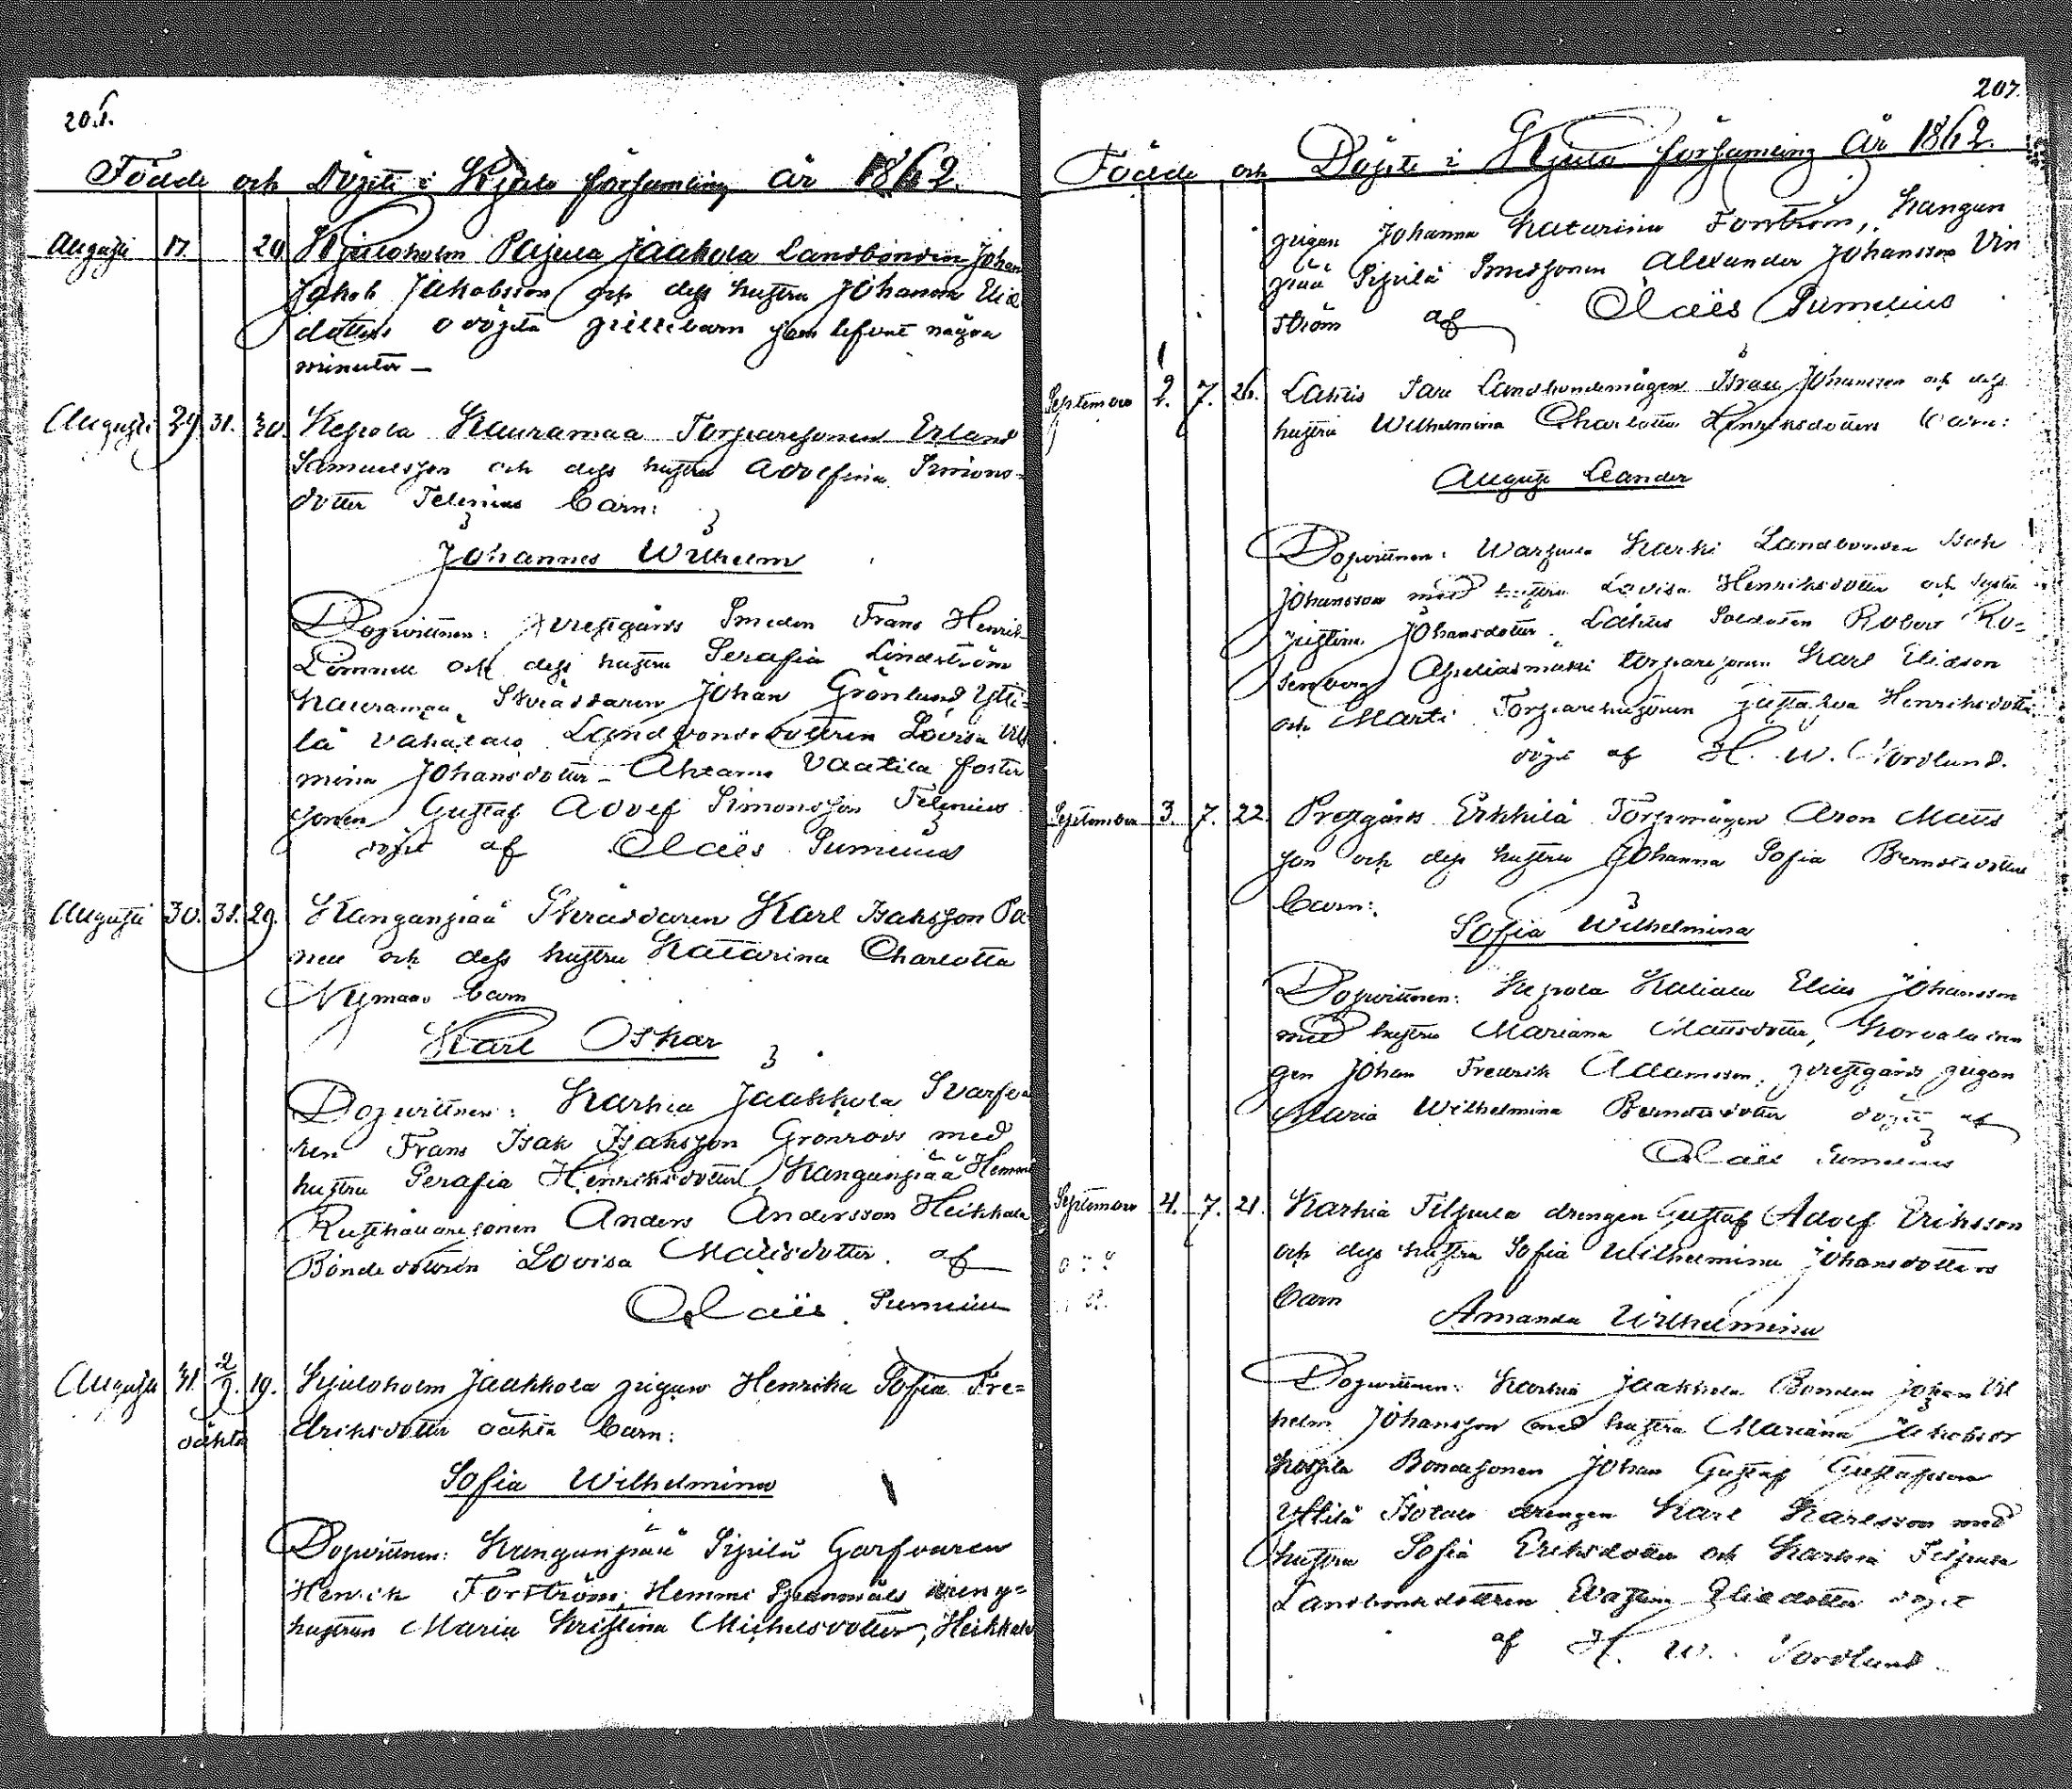 206.
Födde och Döpte i Kjulo församling år 1862.
Augusti 17. 20 Kjuloholm Pajula Jaakola Landbonden Johan
Jakob Jakobsson och dess hustru Johanna Elia
dotters odöpta gillebarn som lefvat några
minuter —
Augusti 29. 31. 30. Kepola Kauramaa Torparesonen Erland
Samuelsson och dess hustru Adolfina Simons-
dotter Telenius barn:
Johannes Wilhelm
Dopvittnen: Prestgårds Smeden Frans Henrik
och dess hustru Serafia Lindström
Kauramaa Skräddaren Johan Grönlund, Ytti-
lä Vahalato Landbondedottren Lovisa Vil
mina Johansdotter — Ahrama Vaatila foster
sonen Gustaf Adolf Simonsson Telenius
döpt af Claës Sumelius
Augusti 30. 31. 29. Kanganpää Skräddaren Karl Isaksson Pa
och dess hustru Katarina Charlotta
Nyman barn
Karl Oskar
Dopvittnen: Karhia Jaakkola Svarfva
ren Frans Isak Isaksson Grönroos med
hustru Serafia Henriksdotter, Kanganpää Hemmi
Rusthållaresonen Anders Andersson Heikkala
Bondedottren Lovisa Matisdotter. af
Claës Sumelius
Augusti 31. 2/9. 19. Kjuloholm Jaakkola pigan Henrika Sofia Fre=
driksdotter oächta barn:
oächta
Sofia Wilhelmina
Dopvittnen: Kanganpää Sipilä Garfvaren
Henrik Forström, Hemmi dreng=
hustrun Maria Kristina Michelsdotter, Heikkala
207.
Födde och Döpte i Kjulo församling år 1862.
pigan Johanna Katarina Forström, Kangan
pää Sipilä Smedsonen Alexander Johansson Vin
ström af Claës Sumelius
September 2. 7. 26. Lähtis Sare Landbondemågen Israel Johansson och dess
hustru Wilhelmina Charlotta Henriksdotters barn:
August Leander
Dopvittnen: Karhi Landbonden Isak
Johansson med hustru Lovisa Henriksdotter och
Justina Johansdotter. Lähtis Soldaten Robert Ro=
senberg torparesonen Karl Eliasson
och Marti Torparehustrun Gustafva Henriksdotter
döpt af H. W. Nordlund.
September 3. 7. 22. Prestgårds Erkkilä Torpmågen Aron Matts
son och dess hustru Johanna Sofia Berndtsdotters
barn:
Sofia Wilhelmina
Dopvittnen: Kepola Elias Johansson
med hustru Mariana Mattsdotter, Korvala dren
gen Johan Fredrik Adamsson, prestgårds pigan
Maria Wilhelmina Berndtsdotter döpt af
Claës Sumelius
September 4. 7. 21. Karhia Filpula drengen Gustaf Adolf Eriksson
och dess hustru Sofia Wilhelmina Johansdotters
barn
Amanda Wilhelmina
Dopvittnen: Karhia Jaakkola Bonden Johan Vil
helm Johansson med hustru Mariana Jakobsdr
Bondesonen Johan Gustaf Gustafsson
Yttilä Isotalo drengen Karl Karlsson med
hustru Sofia Eriksdotter och Karhia Filpula
Landbondedottren Eliedotter döpt
af H. W. Nordlund